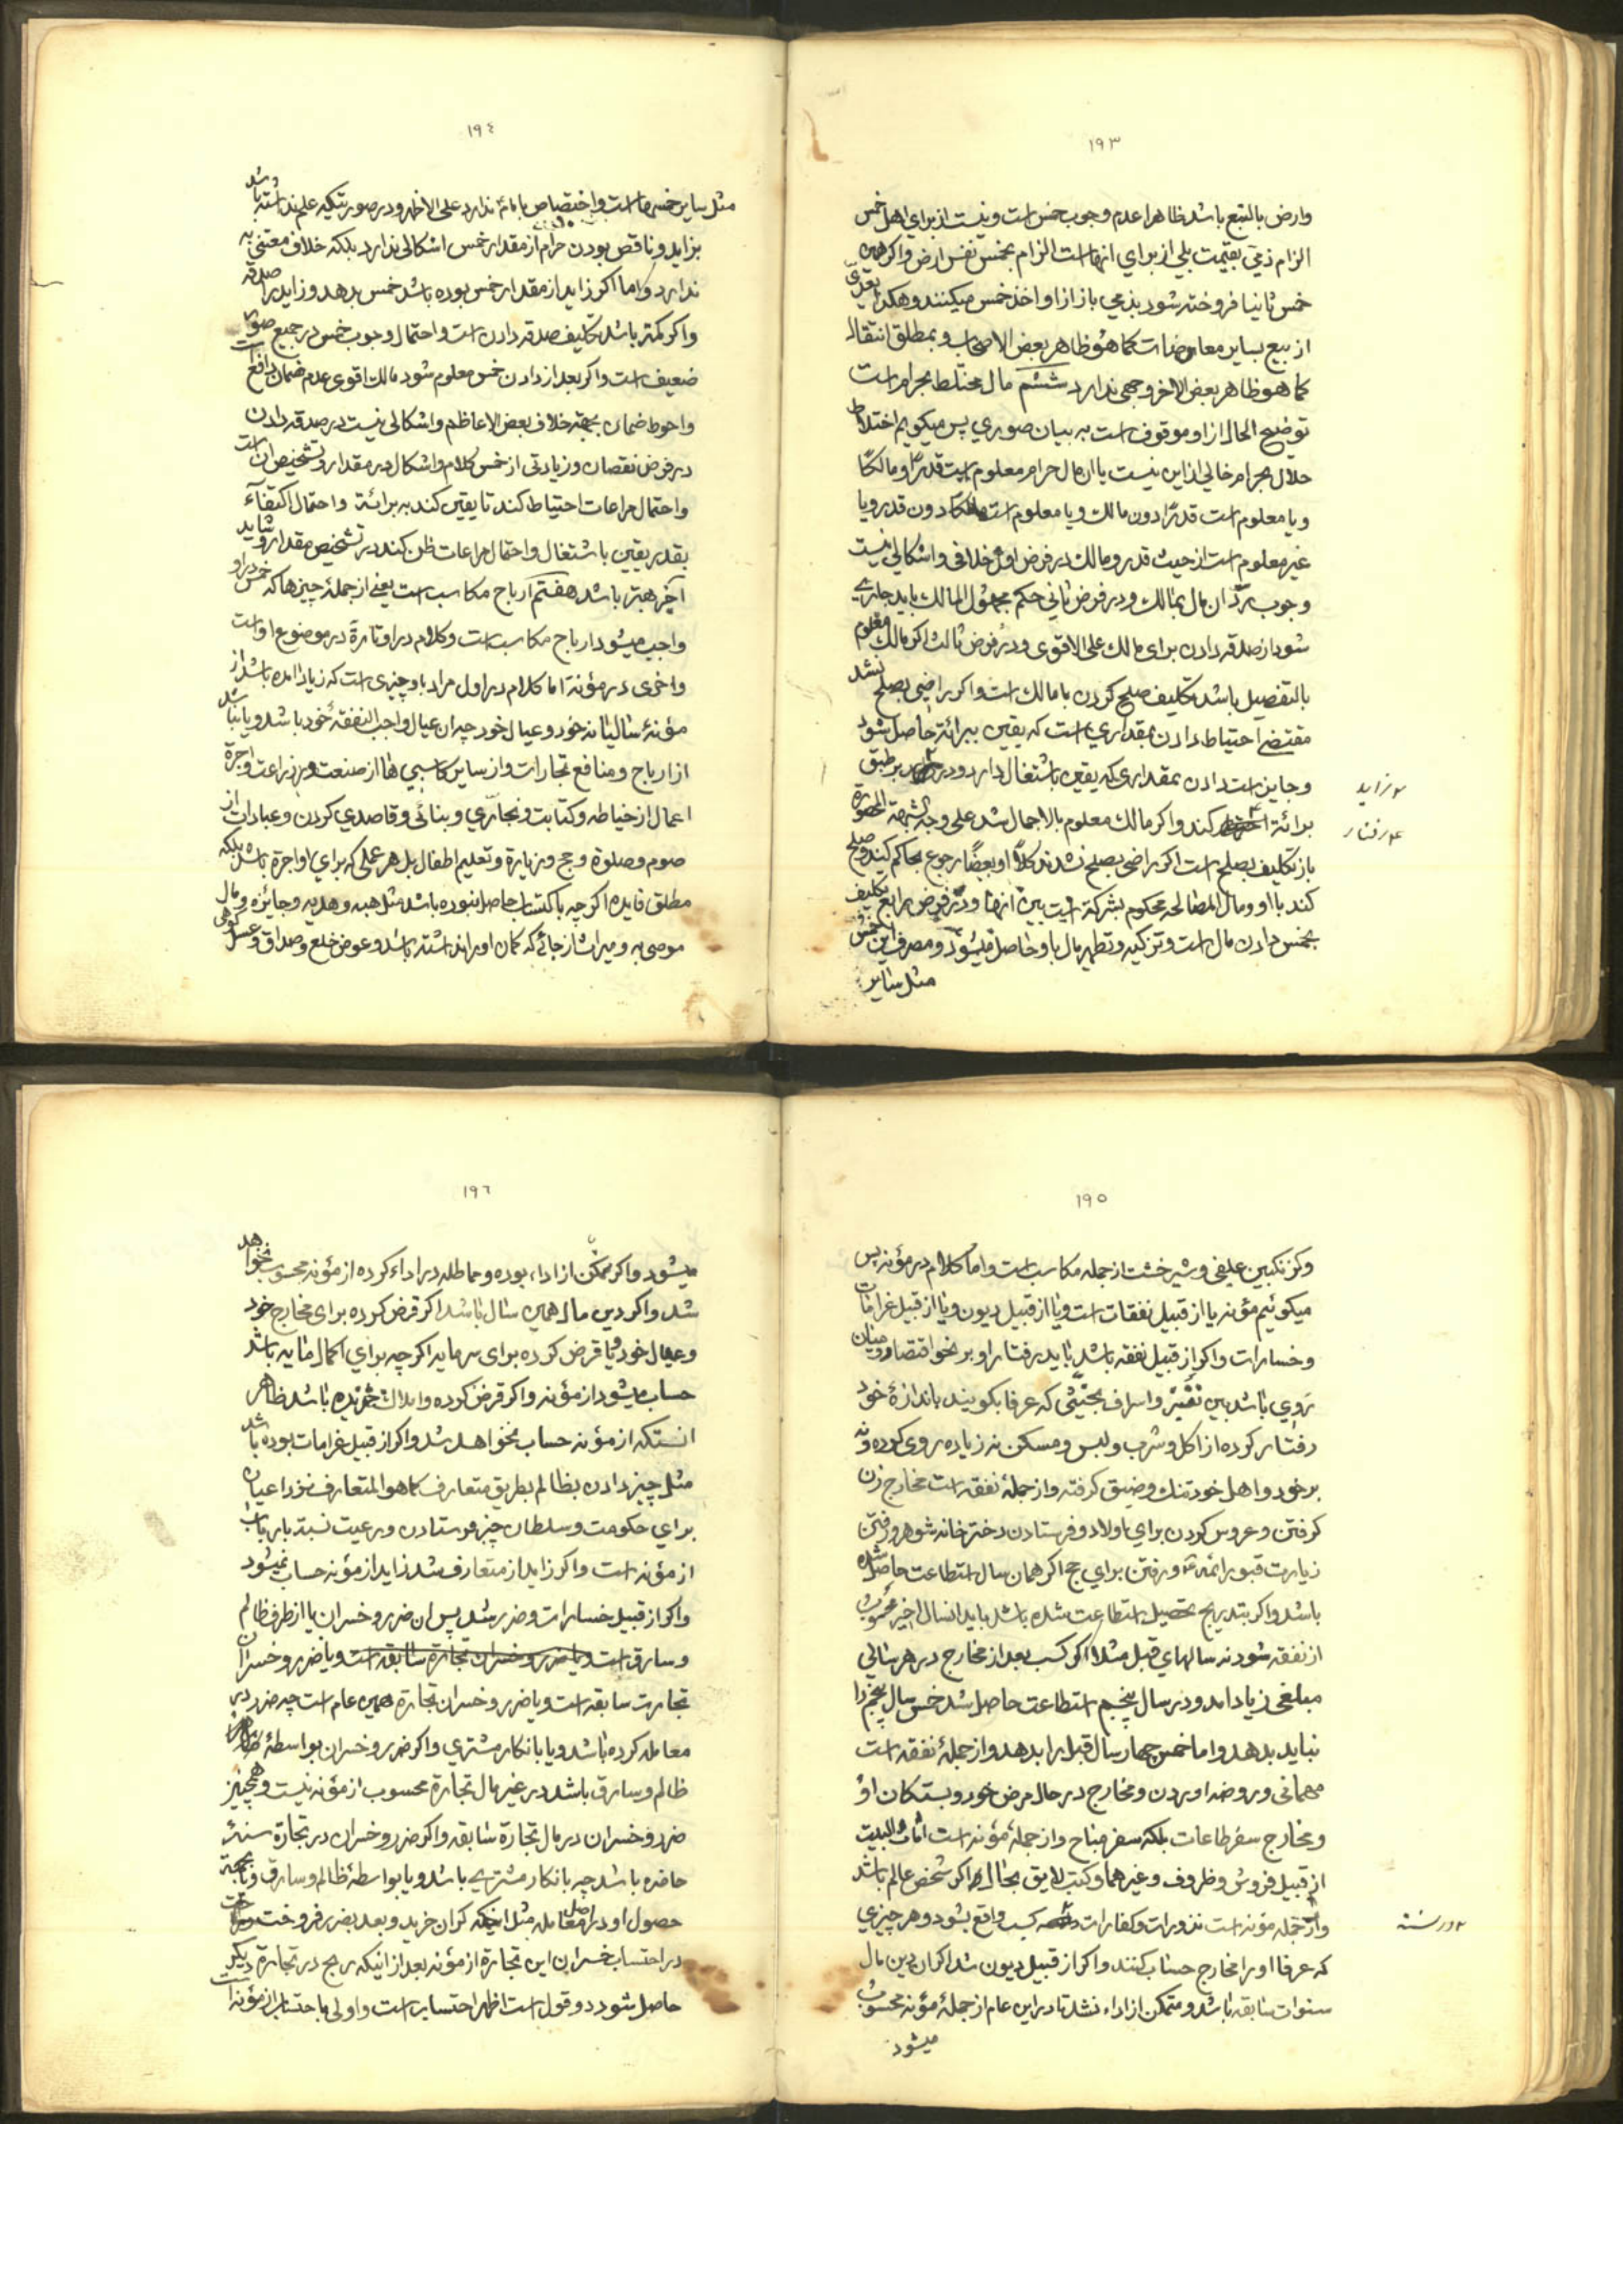 ١٩٣
وارض بالتبع باشد ظاهرا عدم وجوب خمس است و نیست از برای اهل خمس
الزام ذمی بقیمت بلی از برای انهاست الزام بخمس نفس ارض واکر همین
خمس ثانیا فروخته شود بذمی باز از او اخذ خمس میکنند وهکذا تعدی
از بیع بسایر معاوضات کما هو ظاهر بعض الاصحاب و بمطلق انتقال
کما هو ظاهر بعض الاخر وجهی ندارد ششم مال مختلط بحرام است
توضیح الحال از او موقوف است به بیان صوری پس میکویم اختلاط
حلال بحرام خالی از این نیست یا ان مال حرام معلوم است قدرًا و مالکًا
ویا معلوم است قدرًا دون مالك ویا معلوم است مالکًا دون قدر ویا
غیر معلوم است از حیث قدر و مالك در فرض اول خلافی و اشکالی نیست
وجوب ردّ ان مال بمالك ودر فرض ثانی حکم مجهول المالك باید جاری
شود از صدقه دادن برای مالك علی الاقوی ودر فرض ثالث اکر مالك معلوم
بالتفصیل باشد تکلیف صلح کردن با مالك است واکر راضی بصلح نشد
مقتضی احتیاط دادن بمقداری است که یقین ببرائة حاصل شود
وجایز است دادن بمقداری که یقین باشتغال دارد ودر بر طبق
زاید
برائة کند واکر مالك معلوم بالاجمال شد علی وجه الشبهة المحصورة
رفتار
باز تکلیف بصلح است اکر راضی بصلح نشدند کلًا او بعضًا رجوع بحاکم کند وصلح
کند با او ومال المصالحه محکوم بشرکت است بین انها ودر فرض رابع تکلیف
بخمس دادن مال است وتزکیه وتطهیر مال باو حاصل میشود ومصرف این خمس
مثل سایر
١٩٤
مثل سایر خمسهاست واختصاص بامام ندارد علی الاظهر ودر صورتیکه علم نداشته باشد
بزاید وناقص بودن حرام از مقدار خمس اشکالی ندارد بلکه خلاف معتنی به
ندارد واما اکر زاید از مقدار خمس بوده باشد خمس بدهد وزاید را صدقه
واکر کمتر باشد تکلیف صدقه دادن است واحتمال وجوب خمس در جمیع صور
ضعیف است واکر بعد از دادن خمس معلوم شود مالك اقوی عدم ضمان دافع است
واحوط ضمان بجهة خلاف بعض الاعاظم واشکالی نیست در صدقه دادن
در فرض نقصان وزیادتی از خمس کلام واشکال در مقدار وتشخیص ان است
واحتمال مراعات احتیاط کند تا یقین کند به برائة واحتمال اکتفاء
بقدر یقین باشتغال واحتمال مراعات ظن کند در تشخیص مقدار وشاید
آخر بهتر باشد هفتم ارباح مکاسب است یعنی از جملهٔ چیزها که خمس در او
واجب میشود ارباح مکاسب است وکلام در او تارةً در موضوع اوست
واخری در مؤنة اما کلام در اول مراد باو چیزی است که زیاد امده باشد از
مؤنهٔ سالیانه خود وعیال خود چه ان عیال واجب النفقهٔ خود باشد ویا نباشد
از ارباح ومنافع تجارات واز سایر کاسبی ها از صنعت وزراعت واجرة
اعمال از خیاطه وکتابت ونجاری وبنائی وقاصدی کردن وعبادات از
صوم وصلوة وحج وزیارة وتعلیم اطفال بل هر عملی که برای او اجرة باشد بلکه
مطلق فایده اکرچه باکتساب حاصل نبوده باشد مثل هبه وهدیه وجایزه ومال
موصی به ومیراث از جائی که کمان او را نداشته باشد وعوض خلع وصداق وعسل کوهی
١٩٥
وکزنکبین علیفی وشیرخشت از جمله مکاسب است واما کلام در مؤنه پس
میکوئیم مؤنه یا از قبیل نفقات است ویا از قبیل دیون ویا از قبیل غرامات
وخسارات واکر از قبیل نفقه باشد باید رفتار او بر نحو اقتصاد ومیان
روی باشد بین تقتیر واسراف بحیثی که عرفا بکویند باندازهٔ خود
رفتار کرده از اکل وشرب ولبس ومسکن نه زیاده روی کرده ونه
بر خود واهل خود تنك وضیق کرفته واز جملهٔ نفقه است مخارج زن
کرفتن وعروس کردن برای اولاد وفرستادن دختر خانه شوهر ورفتن
زیارت قبور ائمه ورفتن برای حج اکر همان سال استطاعت حاصل شده
باشد واکر بتدریج تحصیل استطاعت شده باشد باید انسال اخیر محسوب
از نفقه شود نه سالهای قبل مثلا اکر کسب بعد از مخارج در هر سالی
مبلغی زیاد امد ودر سال پنجم استطاعت حاصل شد خمس سال پنجم را
نباید بدهد واما خمس چهار سال قبل را بدهد واز جملهٔ نفقه است
مهمانی وروضه اوردن ومخارج در حال مرض خود وبستکان او
ومخارج سفر طاعات بلکه سفر مباح واز جملهٔ مؤنه است اثاث البیت
از قبیل فروش وظروف وغیرهما وکتب لایق بحال اکر شخص عالم باشد
واز جمله مؤنه است نذورات وکفارات کسب واقع بشود وهر چیزی
در سنه
که عرفا او را مخارج حساب کنند واکر از قبیل دیون شد اکر ان دین مال
سنوات سابقه باشد ومتمکن از اداء نشد تا در این عام از جملهٔ مؤنه محسوب
میشود
١٩٦
میشود واکر متمکن از اداء بوده ومماطله در اداء کرده از مؤنه محسوب نخواهد
شد واکر دین مال همین سال باشد اکر قرض کرده برای مخارج خود
وعیال خود ویا قرض کرده برای سرمایه اکرچه برای اکمال مایه باشد
حساب میشود از مؤنه واکر قرض کرده واملاك خریده باشد ظاهر
انستکه از مؤنه حساب نخواهد شد واکر از قبیل غرامات بوده باشد
مثل چیز دادن بظالم بطریق متعارف کما هو المتعارف نزد اعیان
برای حکومت وسلطان چیز فرستادن ورعیت نسبت بارباب
از مؤنه است واکر زاید از متعارف شد زاید از مؤنه حساب نمیشود
واکر از قبیل خسارات وضرر شد پس ان ضرر وخسران یا از طرف ظالم
وسارق است ویا ضرر وخسران تجارة سابقه است ویا ضرر وخسران
تجارت سابقه است ویا ضرر وخسران تجارة همین عام است چه ضرر در
معامله کرده باشد ویا بانکار مشتری واکر ضرر وخسران بواسطهٔ
ظالم وسارق باشد در غیر مال تجارة محسوب از مؤنه نیست وهمچنین
ضرر وخسران در مال تجارة سابقه واکر ضرر وخسران در تجارة سنهٔ
حاضره باشد چه بانکار مشتری باشد ویا بواسطهٔ ظالم وسارق ویا بجهة
حصول او در اصل معامله مثل اینکه کران خرید وبعد بضرر فروخت
در احتساب خسران این تجارة از مؤنه بعد از اینکه ربح در تجارة دیکر
حاصل شود دو قول است اظهر احتساب است واولی عدم احتساب از مؤنه است